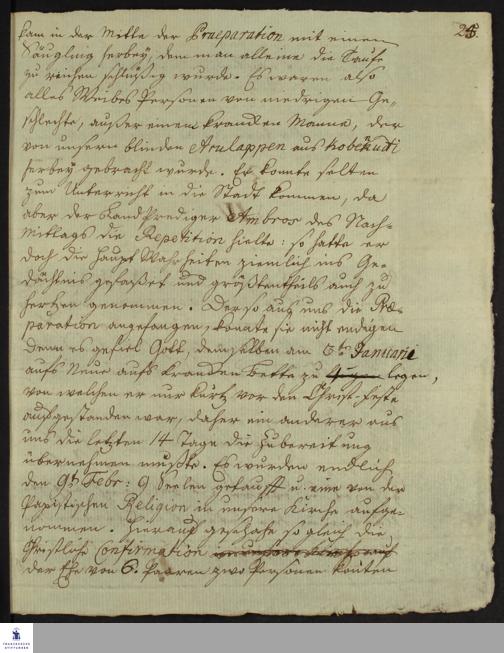 25.
kam in der Mitte der Praeparation mit einem
Säugling herbey, dem man alleine die Taufe
zu reichen schlüßig wurde. Es waren also
alles Weibes Personen von niedrigen Ge-
schlechte, außer einem krancken Manne, der
von unserm blinden Arulappen aus
herbey gebracht wurde. Er konte selten
zum Unterricht in die Stadt kommen, da
aber der Landprediger Ambros des Nach-
mittags die Repetition hielte: so hatte er
doch die Haupt Wahrheiten ziemlich ins Ge-
dächtnis gefaßet und größtentheils auch zu
Hertzen genommen. Der so aus uns die Præ-
paration angefangen, konnte sie nicht endigen
denn es gefiel Gott, demselben am 5ten Januarii
aufs Neue aufs krancken Bette zu legen,
von welchen er nur kurtz vor den Christ-Feste
aufgestanden war, daher ein anderer aus
uns die letzten 14 Tage die Zubereitung
übernehmen mußte. Es wurden endlich
den 9t Febr: 9 Seelen getaufft u. eine von der
Papistischen Religion in unsere Kirche aufge-
nommen. Hierauf geschahe so gleich die
Christliche Confirmation
der Ehe von 6. Paaren zwo Personen konten
FRANCKESCHE
STIFTUNGEN